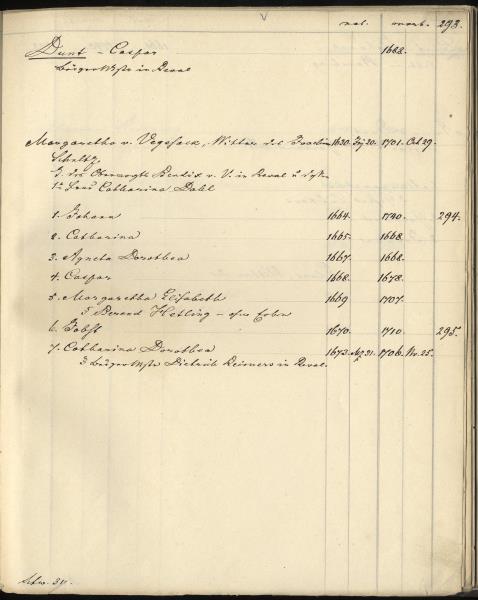 nat. mort. 293.
Dunt - Caspar 1688.
Bürgermstr in Reval
Margaretha v. Vegesack, Wittwe des Joachim 1630. 20. 1701. Oct 29.
Schultz,
T. des Obervogts Bendix v. V. in Reval u
1n Frau Catharina Dahl
1. Johann 1664. 1710. 294.
2. Catharina 1665. 1668.
3. Agneta Dorothea 1667. 1668.
4. Caspar 1668. 1678.
5. Margaretha Elisabeth 1669. 1707.
Berend Hetling -
6. Jobst 1670. 1710. 295.
7. Catharina Dorothea 1673. 31. 1706. Nv. 25.
Bürgermstr Dietrich Reimers in Reval.